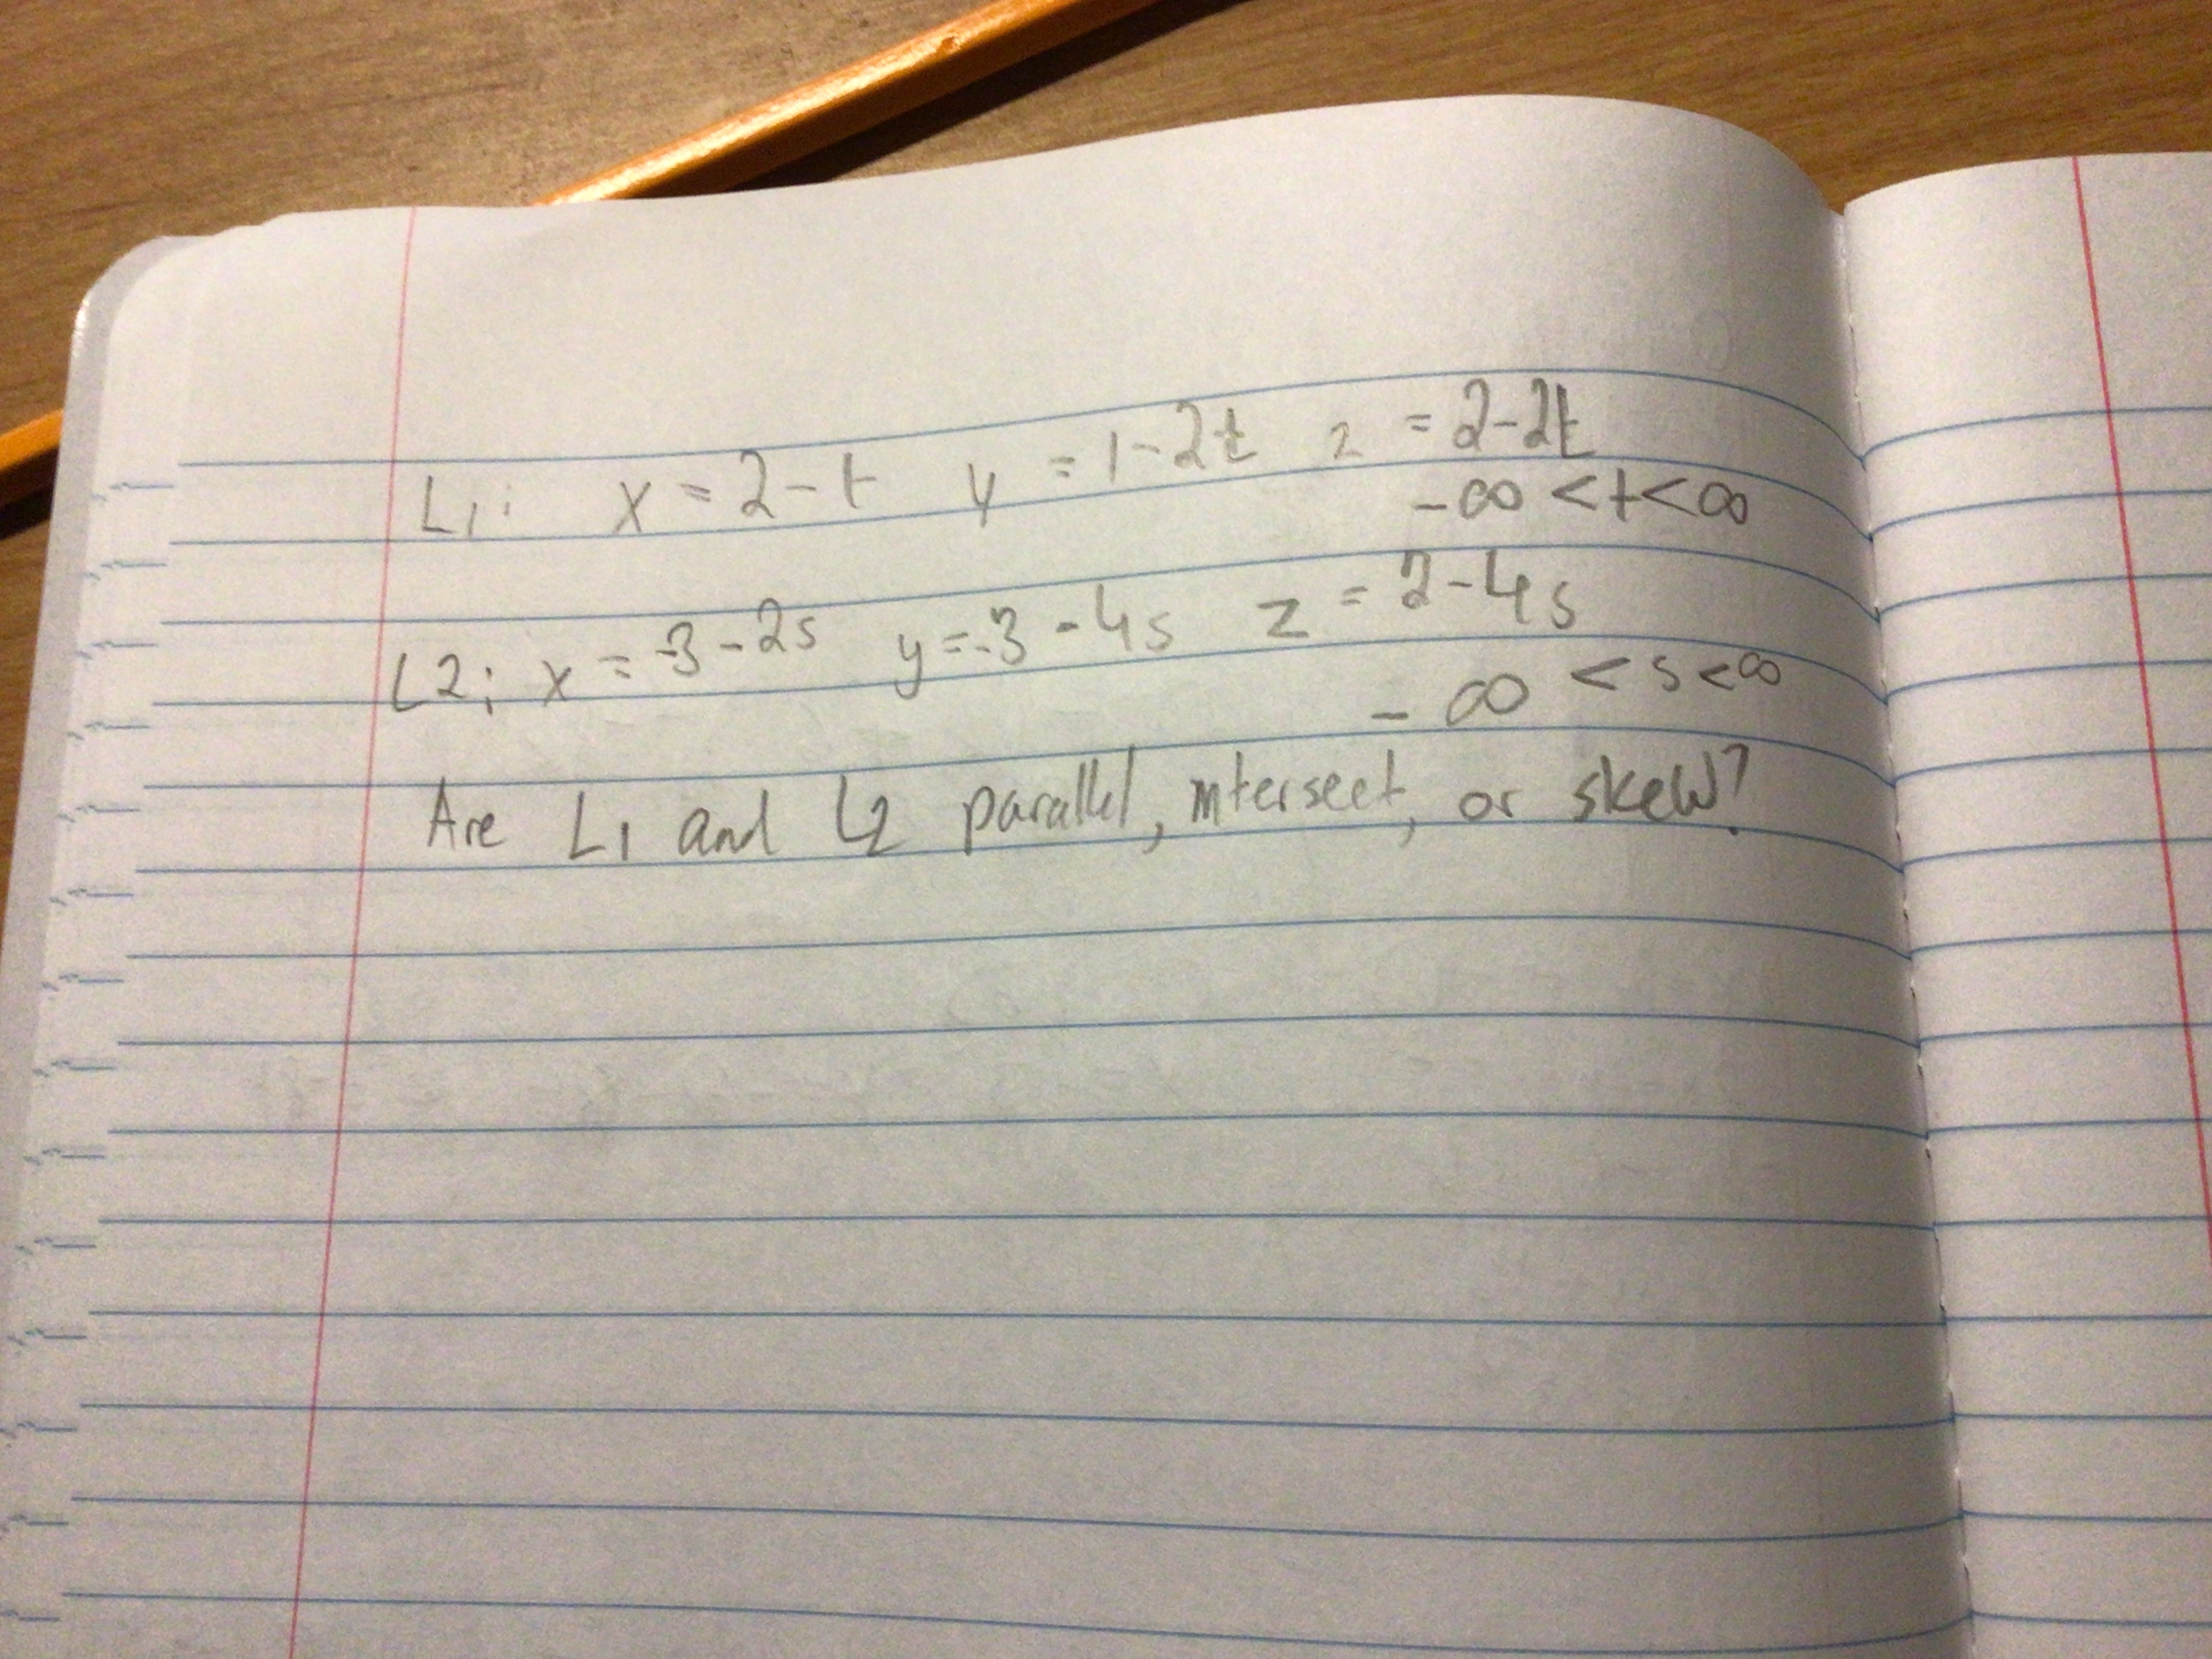 L1: x = 2 - t y = 1 - 2t z = 2 - 2t
-∞ < t < ∞
L2: x = -3 - 2s y = -3 - 4s z = 2 - 4s
-∞ < s < ∞
Are L1 and L2 parallel, intersect, or skew?